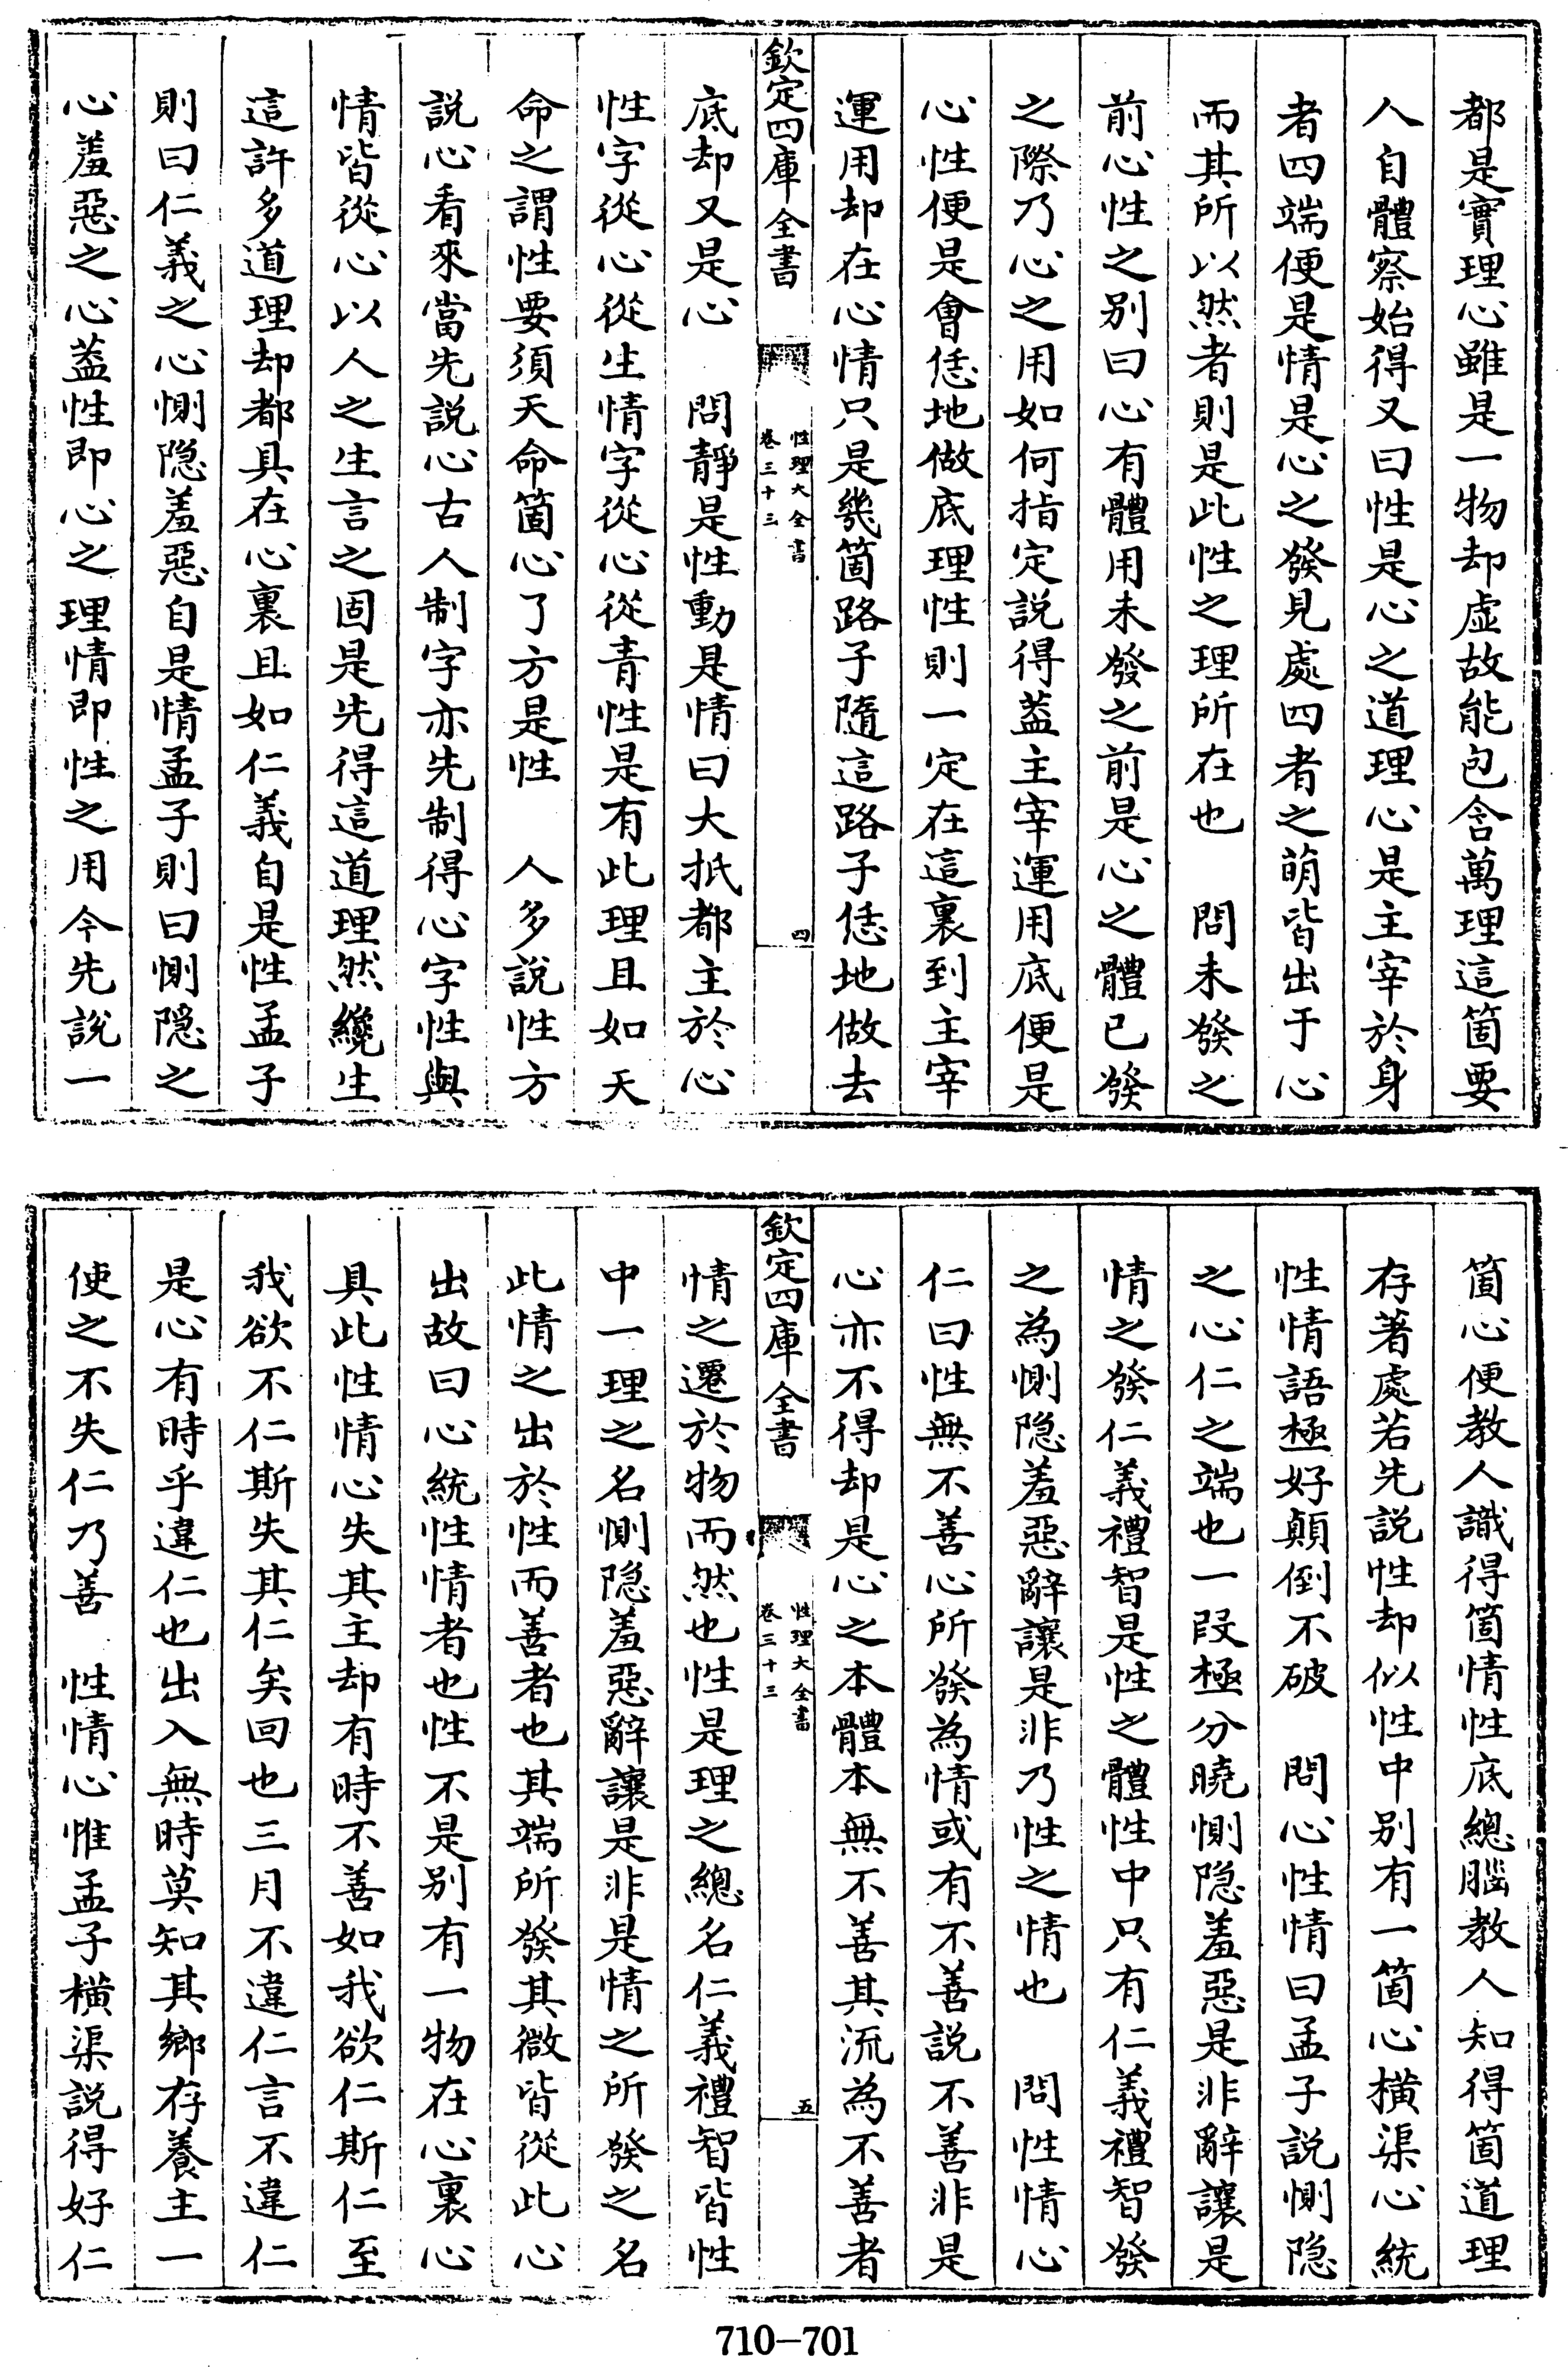 都是實理心雖是一物却虛故能包含萬理這箇要
人自體察始得又曰性是心之道理心是主宰於身
者四端便是情是心之發見處四者之萌皆出于心
而其所以然者則是此性之理所在也　問未發之
前心性之别曰心有體用未發之前是心之體已發
之際乃心之用如何指定說得葢主宰運用底便是
心性便是會恁地做底理性則一定在這裏到主宰
運用却在心情只是幾箇路子隨這路子恁地做去
欽定四庫全書
性理大全書
卷三十三
四
底却又是心　問靜是性動是情曰大抵都主於心
性字從心從生情字從心從青性是有此理且如天
命之謂性要須天命箇心了方是性　人多說性方
說心看來當先說心古人制字亦先制得心字性與
情皆從心以人之生言之固是先得這道理然纔生
這許多道理却都具在心裏且如仁義自是性孟子
則曰仁義之心惻隠羞惡自是情孟子則曰惻隠之
心羞惡之心葢性即心之理情即性之用今先說一
箇心便教人識得箇情性底總腦教人知得箇道理
存著處若先說性却似性中别有一箇心橫渠心統
性情語極好顛倒不破　問心性情曰孟子說惻隠
之心仁之端也一段極分曉惻隠羞惡是非辭讓是
情之發仁義禮智是性之體性中只有仁義禮智發
之為惻隠羞惡辭讓是非乃性之情也　問性情心
仁曰性無不善心所發為情或有不善說不善非是
心亦不得却是心之本體本無不善其流為不善者
欽定四庫全書
性理大全書
卷三十三
五
情之遷於物而然也性是理之總名仁義禮智皆性
中一理之名惻隠羞惡辭讓是非是情之所發之名
此情之出於性而善者也其端所發其微皆從此心
出故曰心統性情者也性不是别有一物在心裏心
具此性情心失其主却有時不善如我欲仁斯仁至
我欲不仁斯失其仁矣回也三月不違仁言不違仁
是心有時乎違仁也出入無時莫知其鄉存養主一
使之不失仁乃善　性情心惟孟子橫渠說得好仁
710-701